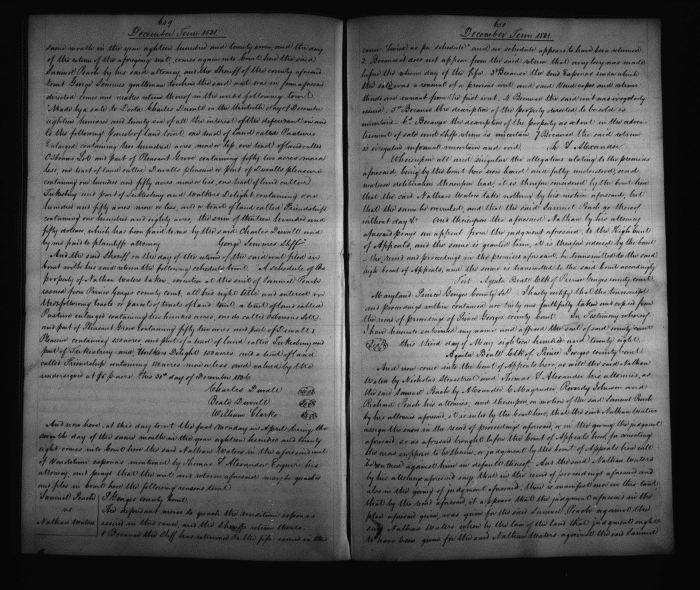 619
December Term 1831.
same month in the year eighteen hundred and twenty seven, and the day
of the return of the aforegoing writ, comes again into Court here the said
Samuel Peach by his said attorney and the Sheriff of the county aforesaid
to wit George Semmes gentleman to whom the said writ was in form aforesaid
directed comes and makes return thereof in the words following to wit
Made by a sale to Doctor Charles Duvall on the thirtieth day of December
eighteen hundred and twenty six of all the interest of the defendant in and
to the following parcels of land to wit one tract of land called Pastures
Enlarged containing two hundred acres more or less one tract of land called
Lot and part of Pleasant Grove containing fifty two acres more or
less, one tract of land called Duvalls pleasure or part of Duvalls pleasure
containing one hundred and fifty acres more or less, one tract of land called
Turkeshiny and part of and Walkers Delight containing one
hundred and fifty acres more or less, and a tract of land called Friendship
containing one hundred and eighty acres, the sum of thirteen hundred and
fifty dollars which has been paid to me by the said Charles Duvall and
by me paid to plaintiffs attorney George Semmes Shff
And the said Sheriff on the day of the return of the said writ filed in
Court with his said return the following schedule to wit. A schedule of the
property of Nathan Waters taken, under at the suit of Samuel Peach
issued from Prince Georges county court all his right title and interest in
the following tracts or parcels of tracts of land to wit a tract of land called
Pastures enlarged containing two hundred acres, one do called Lot
and part of Pleasant Grove containing fifty two acres and part of Duvalls
Pleasure containing 150 acres and part of a tract of land called
part of and Walkers Delight 150 acres and a tract of land
called Friendship containing 180 acres more or less and valued by the
undersigned at per acre this 30th day of December 1826
Charles Duvall Seal
Beale Duvall Seal
William Clarke Seal
And now here, at this day to wit the first Monday in April being the
day of the same month in the year eighteen hundred and twenty
eight comes into Court here the said Nathan Waters in the aforesaid writ
of Venditioni exponas mentioned by Thomas S Alexander Esquire his
attorney and prays that the writ and return aforesaid may be quashed
and files in Court here the following reasons to wit
Samuel Peach P Georges county Court
vs The defendant moves to quash the Venditioni exponas
Nathan Waters issued in this cause, and the Sheriffs return thereto
1 Because the Shff has returned to the fifa issued in this
620
December Term 1831.
cause "levied as per schedule" and no schedule appears to have been returned
2 Because it does not appear from the said return that any levy was made
before the return day of the fifa. 3 Because the
as a amount of a previous writ and said Vendi expo and return
thereto are variant from the first writ. 4 Because the said writ was
issued. 5th Because the description of the property directed to be sold is
uncertain 6th Because the description of the property as about in the adver
tisement of sale and Shffs return is uncertain 7 Because the said return
is irregular informal uncertain and void. Th S Alexander
Whereupon all and singular the allegations relating to the premises
aforesaid being by the Court here seen heard and fully understood, and
mature deliberation thereupon had, it is therefore considered by the Court here
that the said Nathan Waters take nothing by his motion aforesaid, but
that the same be overruled, and that the said Samuel Peach go thereof
without day &c And thereupon the aforesaid Nathan by his attorney
aforesaid prays an appeal from the judgment aforesaid, to the High Court
of Appeals, and the same is granted him, it is therefore ordered by the Court
the record and proceedings in the premises aforesaid be transmitted to the said
high Court of Appeals, and the same is transmitted to the said Court accordingly
Test Aquila Beall Clk of Prince Georges county court
Maryland Prince Georges County Sct I hereby certify that the transcript
and proceedings within contained are truly and faithfully taken and copied from
the record of proceedings of Prince Georges county Court In Testimony whereof
I have hereunto subscribed my name and affixed the seal of said county court
Seal this third day of May eighteen hundred and twenty eight.
Aquila Beall Clk of Prince Georges county Court
And now come into the Court of Appeals here, as well the said Nathan
Waters by Nicholas Brewer and Thomas S Alexander his attornies, as
the said Samuel Peach by Alexander C Magruder Reverdy Johnson and
Richard Peach his attornies, and thereupon, on motion of the said Samuel Peach
by his attornies aforesaid, it is ruled by the Court here, that the said Nathan Waters
assign the errors in the record of proceedings aforesaid, or in the giving the judgment
aforesaid, or as aforesaid brought before the Court of Appeals here for correcting
the errors supposed to be therein, or judgment by the Court of Appeals here will
be entered against him on default thereof. And the said Nathan Waters
by his attornies aforesaid says that in the record of proceedings aforesaid and
also in the giving of judgment aforesaid, there is manifest error in this to wit
that by the record aforesaid it appears that the judgment aforesaid in the
plea aforesaid given was given for the said Samuel Peach against the
said Nathan Waters when by the law of the land that judgment ought
to have been given for the said Nathan Waters against the said Samuel